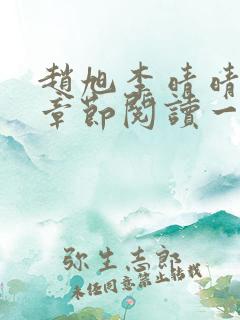 趙旭李晴晴
章節閱讀一
弥生志郎
未经同意禁止转载